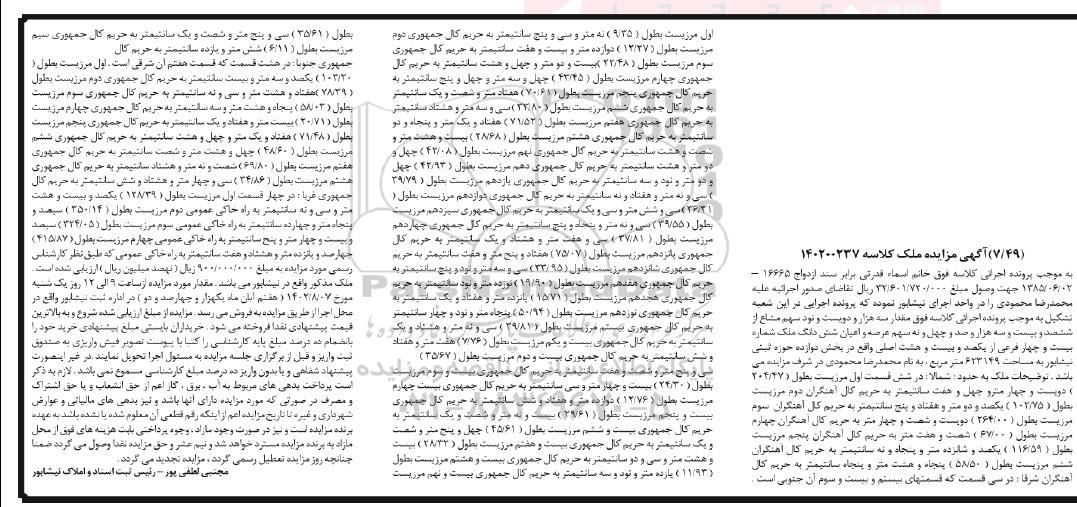 (۷/۴۹)آگهی مزایده ملک کلاسه ۱۴۰۲۰۰۲۳۷
به موجب پرونده اجرائی کلاسه فوق خانم اسماء قدرتی برابر سند ازدواج ۱۶۶۶۵ –
۱۳۸۵/۰۶/۰۲ جهت وصول مبلغ ۳۲/۶۰۱/۷۲۰/۰۰۰ ریال تقاضای صدور اجرائیه علیه
محمدرضا محمودی را در واحد اجرای نیشابور نموده که پرونده اجرایی در این شعبه
تشکیل به موجب پرونده اجرائی کلاسه فوق مقدار سه هزار و دویست و نود سهم مشاع از
ششصد و بیست و سه هزار و صد و چهل و نه سهم عرصه و اعیان شش دانگ ملک شماره
بیست و چهار فرعی از یکصد و بیست و هشت اصلی واقع در بخش دوازده حوزه ثبتی
نیشابور به مساحت ۶۲۳۱۴۹ متر مربع . به نام محمدرضا محمودی در شرف مزایده می
باشد . توضیحات ملک به حدود : شمالا : در شش قسمت اول مرزیست بطول ( ۲۰۲/۴۷
) دویست و چهار مترو چهل و هفت سانتیمتر به حریم کال آهنگران دوم مرزیست
بطول ( ۱۰۲/۷۵ ) یکصد و دو متر و هفتاد و پنج سانتیمتر به حریم کال آهنگران سوم
مرزیست بطول ( ۲۶۴/۰۰ ) دویست و شصت و چهار متر به حریم کال آهنگران چهارم
مرزیست بطول ( ۶۷/۰۰ ) شصت و هفت متر به حریم کال آهنگران پنجم مرزیست
بطول ( ۱۱۶/۵۹ ) یکصد و شانزده متر و پنجاه و نه سانتیمتر به حریم کال آهنگران
ششم مرزیست بطول ( ۵۸/۵۰ ) پنجاه و هشت متر و پنجاه سانتیمتر به حریم کال
آهنگران شرقا : در سی قسمت که قسمتهای بیستم و بیست و سوم آن جنوبی است .
اول مرزیست بطول ( ۹/۳۵ ) نه متر و سی و پنج سانتیمتر به حریم کال جمهوری دوم
مرزیست بطول ( ۱۲/۲۷ ) دوازده متر و بیست و هفت سانتیمتر به حریم کال جمهوری
سوم مرزیست بطول ( ۲۲/۴۸ )بیست و دو متر و چهل و هشت سانتیمتر به حریم کال
جمهوری چهارم مرزیست بطول ( ۴۳/۴۵ ) چهل و سه متر و چهل و پنج سانتیمتر به
حریم کال جمهوری پنجم مرزیست بطول ( ۷۰/۶۱ ) هفتاد متر و شصت و یک سانتیمتر
به حریم کال جمهوری ششم مرزیست بطول ( ۳۳/۸۰ )سی و سه متر و هشتاد سانتیمتر
به حریم کال جمهوری هفتم مرزیست بطول ( ۷۱/۵۲ ) هفتاد و یک متر و پنجاه و دو
سانتیمتر به حریم کال جمهوری هشتم مرزیست بطول ( ۲۸/۶۸ ) بیست و هشت متر و
شصت و هشت سانتیمتر به حریم کال جمهوری نهم مرزیست بطول ( ۴۲/۰۸ ) چهل و
دو متر و هشت سانتیمتر به حریم کال جمهوری دهم مرزیست بطول ( ۴۲/۹۳ ) چهل
و دو متر و نود و سه سانتیمتر به حریم کال جمهوری یازدهم مرزیست بطول ( ۳۹/۷۹
) سی و نه متر و هفتاد و نه سانتیمتر به حریم کال جمهوری دوازدهم مرزیست بطول (
۳۶/۳۱ )سی و شش متر و سی و یک سانتیمتر به حریم کال جمهوری سیزدهم مرزیست
بطول ( ۳۹/۵۵ ) سی و نه متر و پنجاه و پنج سانتیمتر به حریم کال جمهوری چهاردهم
مرزیست بطول ( ۳۷/۸۱ ) سی و هفت متر و هشتاد و یک سانتیمتر به حریم کال
جمهوری پانزدهم مرزیست بطول ( ۷۵/۰۷ ) هفتاد و پنج متر و هفت سانتیمتر به حریم
کال جمهوری شانزدهم مرزیست بطول ( ۳۳/۹۵ ) سی و سه متر و نود و پنج سانتیمتر به
حریم کال جمهوری هفدهم مرزیست بطول ( ۱۹/۹۰ ) نوزده متر و نود سانتیمتر به حریم
کال جمهوری هجدهم مرزیست بطول ( ۱۵/۷۱ ) پانزده متر و هفتاد و یک سانتیمتر به
حریم کال جمهوری نوزدهم مرزیست بطول ( ۵۰/۹۴ ) پنجاه متر و نود و چهار سانتیمتر
به حریم کال جمهوری بیستم مرزیست بطول ( ۳۹/۸۱ ) سی و نه متر و هشتاد و یک
سانتیمتر به حریم کال جمهوری بیست و یکم مرزیست بطول ( ۷/۷۶ ) هفت متر و هفتاد
و شش سانتیمتر به حریم کال جمهوری بیست و دوم مرزیست بطول ( ۳۵/۶۷ )
سی و پنج متر و شصت و هفت سانتیمتر به حریم کال جمهوری بیست و سوم مرزیست
بطول ( ۲۴/۳۰ ) بیست و چهار متر و سی سانتیمتر به حریم کال جمهوری بیست چهارم
مرزیست بطول ( ۱۲/۷۶ ) دوازده متر و هفتاد و شش سانتیمتر به حریم کال جمهوری
بیست و پنجم مرزیست بطول ( ۲۹/۶۱ ) بیست و نه متر و شصت و یک سانتیمتر به
حریم کال جمهوری بیست و ششم مرزیست بطول ( ۴۵/۶۱ ) چهل و پنج متر و شصت
و یک سانتیمتر به حریم کال جمهوری بیست و هفتم مرزیست بطول ( ۲۸/۳۲ ) بیست
و هشت متر و سی و دو سانتیمتر به حریم کال جمهوری بیست و هشتم مرزیست بطول
( ۱۱/۹۳ ) یازده متر و نود و سه سانتیمتر به حریم کال جمهوری بیست و نهم مرزیست
بطول ( ۳۵/۶۱ ) سی و پنج متر و شصت و یک سانتیمتر به حریم کال جمهوری سیم
مرزیست بطول ( ۶/۱۱ ) شش متر و یازده سانتیمتر به حریم کال
جمهوری جنوبا : در هشت قسمت که قسمت هفتم آن شرقی است . اول مرزیست بطول (
۱۰۳/۲۰ ) یکصد و سه متر و بیست سانتیمتر به حریم کال جمهوری دوم مرزیست بطول
( ۷۸/۳۹ )هفتاد و هشت متر و سی و نه سانتیمتر به حریم کال جمهوری سوم مرزیست
بطول ( ۵۸/۰۳ ) پنجاه و هشت متر و سه سانتیمتر به حریم کال جمهوری چهارم مرزیست
بطول ( ۲۰/۷۱ ) بیست متر و هفتاد و یک سانتیمتر به حریم کال جمهوری پنجم مرزیست
بطول ( ۷۱/۴۸ ) هفتاد و یک متر و چهل و هشت سانتیمتر به حریم کال جمهوری ششم
مرزیست بطول ( ۴۸/۶۰ ) چهل و هشت متر و شصت سانتیمتر به حریم کال جمهوری
هفتم مرزیست بطول ( ۶۹/۸۰ ) شصت و نه متر و هشتاد سانتیمتر به حریم کال جمهوری
هشتم مرزیست بطول ( ۳۴/۸۶ ) سی و چهار متر و هشتاد و شش سانتیمتر به حریم کال
جمهوری غربا : در چهار قسمت اول مرزیست بطول ( ۱۲۸/۳۹ ) یکصد و بیست و هشت
متر و سی و نه سانتیمتر به راه خاکی عمومی دوم مرزیست بطول ( ۳۵۰/۱۴ ) سیصد و
پنجاه متر و چهارده سانتیمتر به راه خاکی عمومی سوم مرزیست بطول ( ۳۲۴/۰۵ ) سیصد
و بیست و چهار متر و پنج سانتیمتر به راه خاکی عمومی چهارم مرزیست بطول ( ۴۱۵/۸۷ )
چهارصد و پانزده متر و هشتاد و هفت سانتیمتر به راه خاکی عمومی که طبق نظر کارشناس
رسمی مورد مزایده به مبلغ ۹۰۰/۰۰۰/۰۰۰ ریال ( نهصد میلیون ریال ) ارزیابی شده است .
ملک مذکور واقع در نیشابور می باشد . مقدار مورد مزایده از ساعت ۹ الی ۱۲ روز یک شنبه
مورخ ۱۴۰۲/۸/۰۷ ( هفتم آبان ماه یکهزار و چهارصد و دو ) در اداره ثبت نیشابور واقع در
محل اجرا از طریق مزایده به فروش می رسد . مزایده از مبلغ ارزیابی شده شروع و به بالاترین
قیمت پیشنهادی نقدا فروخته می شود . خریداران بایستی مبلغ پیشنهادی خرید خود را
بانضمام ده درصد مبلغ پایه کارشناسی را کتبا با پیوست تصویر فیش واریزی به صندوق
ثبت واریز و قبل از برگزاری جلسه مزایده به مسئول اجرا تحویل نمایند .در غیر اینصورت
پیشنهاد شفاهی و یا بدون واریز ده درصد مبلغ کارشناسی مسموع نمی باشد . لازم به ذکر
است پرداخت بدهی های مربوط به آب ، برق ، گاز اعم از حق انشعاب و یا حق اشتراک
و مصرف در صورتی که مورد مزایده دارای آنها باشد و نیز بدهی های مالیاتی و عوارض
شهرداری و غیره تا تاریخ مزایده اعم از اینکه رقم قطعی آن معلوم شده یا نشده باشد به عهده
برنده مزایده است و نیز در صورت وجود مازاد ، وجوه پرداختی بابت هزینه های فوق از محل
مازاد به برنده مزایده مسترد خواهد شد و نیم عشر و حق مزایده نقدا وصول می گردد ضمنا
چنانچه روز مزایده تعطیل رسمی گردد ، مزایده تجدید می گردد .
مجتبی لطفی پور – رئیس ثبت اسناد و املاک نیشابور